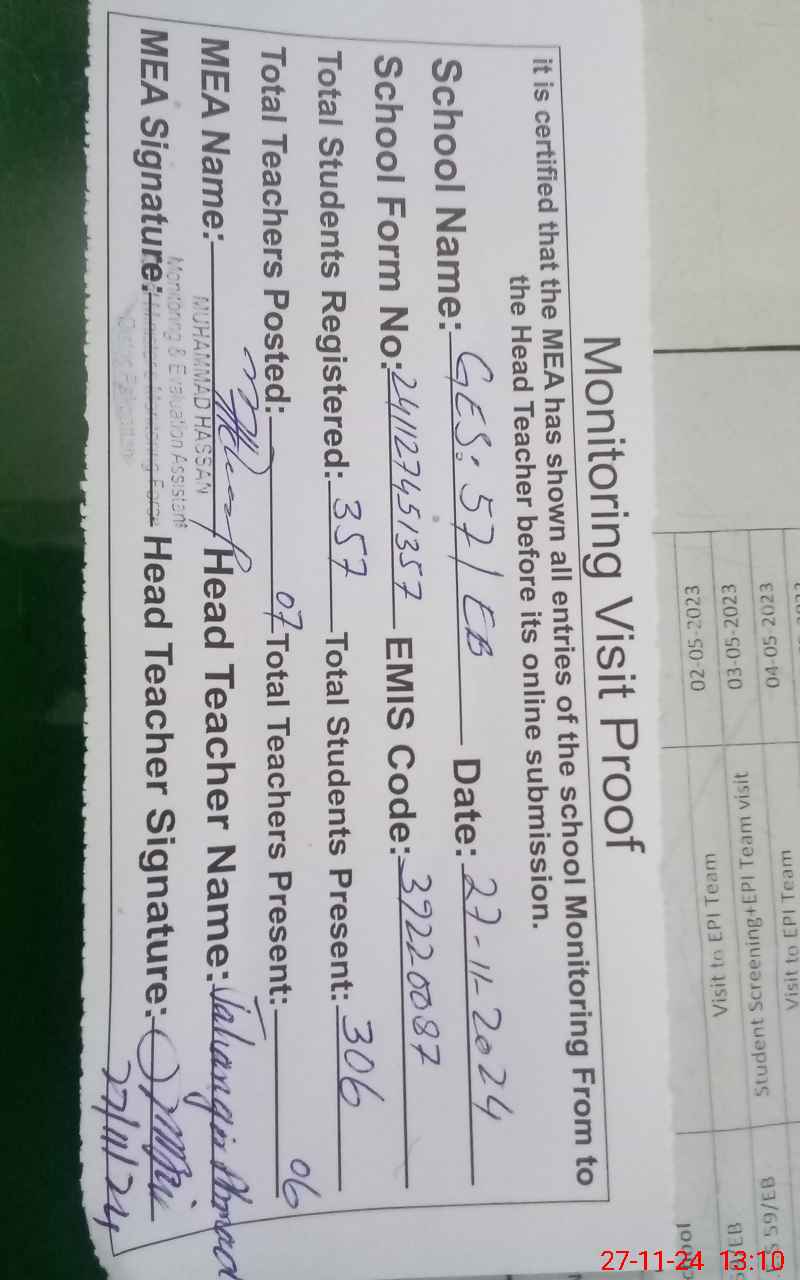 Monitoring Visit Proof
it is certified that the MEA has shown all entries of the school Monitoring From to
the Head Teacher before its online submission.
School Name: GES: 57/EB Date: 27-11-2024
School Form No: 241127451357 EMIS Code: 39220087
Total Students Registered: 357 Total Students Present: 306
Total Teachers Posted: 07 Total Teachers Present: 06
MEA Name: Head Teacher Name: Jahangir Ahmad
MUHAMMAD HASSAN
Monitoring & Evaluation Assistant
MEA Signature: Head Teacher Signature:
27/11/24
02-05-2023 Visit to EPI Team
03-05-2023 Student Screening+EPI Team visit
04-05 2023 Visit to EPI Team
59/EB
27-11-24 13:10